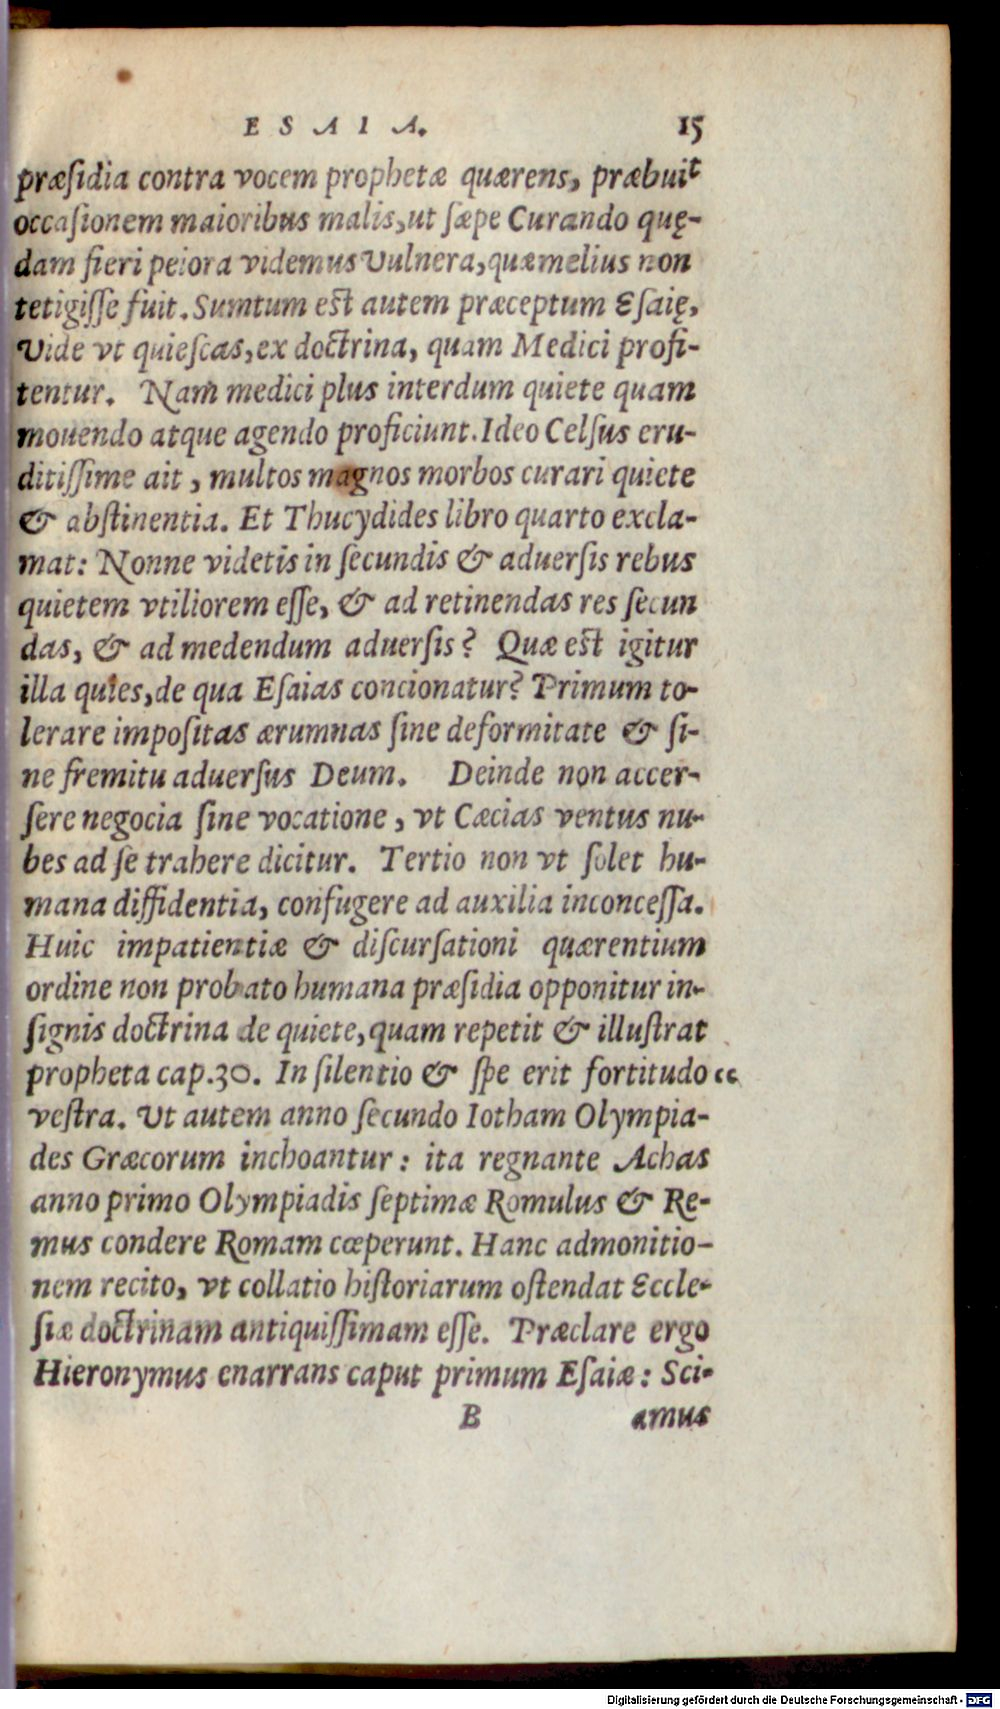 ESAIA. 15
præſidia contra vocem prophetæ quærens, præbuit
occaſionem maioribus malis, ut ſæpe Curando quę-
dam fieri peiora videmus Vulnera, quæ melius non
tetigiſſe fuit. Sumtum est autem præceptum Eſaię,
Vide vt quieſcas, ex doctrina, quam Medici profi-
tentur. Nam medici plus interdum quiete quam
mouendo atque agendo proficiunt. Ideo Celſus eru-
ditiſſime ait, multos magnos morbos curari quiete
& abſtinentia. Et Thucydides libro quarto excla-
mat: Nonne videtis in ſecundis & aduerſis rebus
quietem vtiliorem eſſe, & ad retinendas res ſecun
das, & ad medendum aduerſis? Quæ est igitur
illa quies, de qua Eſaias concionatur? Primum to-
lerare impoſitas ærumnas ſine deformitate & ſi-
ne fremitu aduerſus Deum. Deinde non accer-
ſere negocia ſine vocatione, vt Cæcias ventus nu-
bes ad ſe trahere dicitur. Tertio non vt ſolet hu-
mana diffidentia, confugere ad auxilia inconceſſa.
Huic impatientiæ & diſcurſationi quærentium
ordine non probato humana præſidia opponitur in-
ſignis doctrina de quiete, quam repetit & illuſtrat
propheta cap.30. In ſilentio & ſpe erit fortitudo "
veſtra. Vt autem anno ſecundo Iotham Olympia-
des Græcorum inchoantur: ita regnante Achas
anno primo Olympiadis ſeptimæ Romulus & Re-
mus condere Romam cœperunt. Hanc admonitio-
nem recito, vt collatio hiſtoriarum oſtendat Eccle-
ſiæ doctrinam antiquiſſimam eſſe. Præclare ergo
Hieronymus enarrans caput primum Eſaiæ: Sci-
B amus
Digitalisierung gefördert durch die Deutsche Forschungsgemeinschaft - DFG